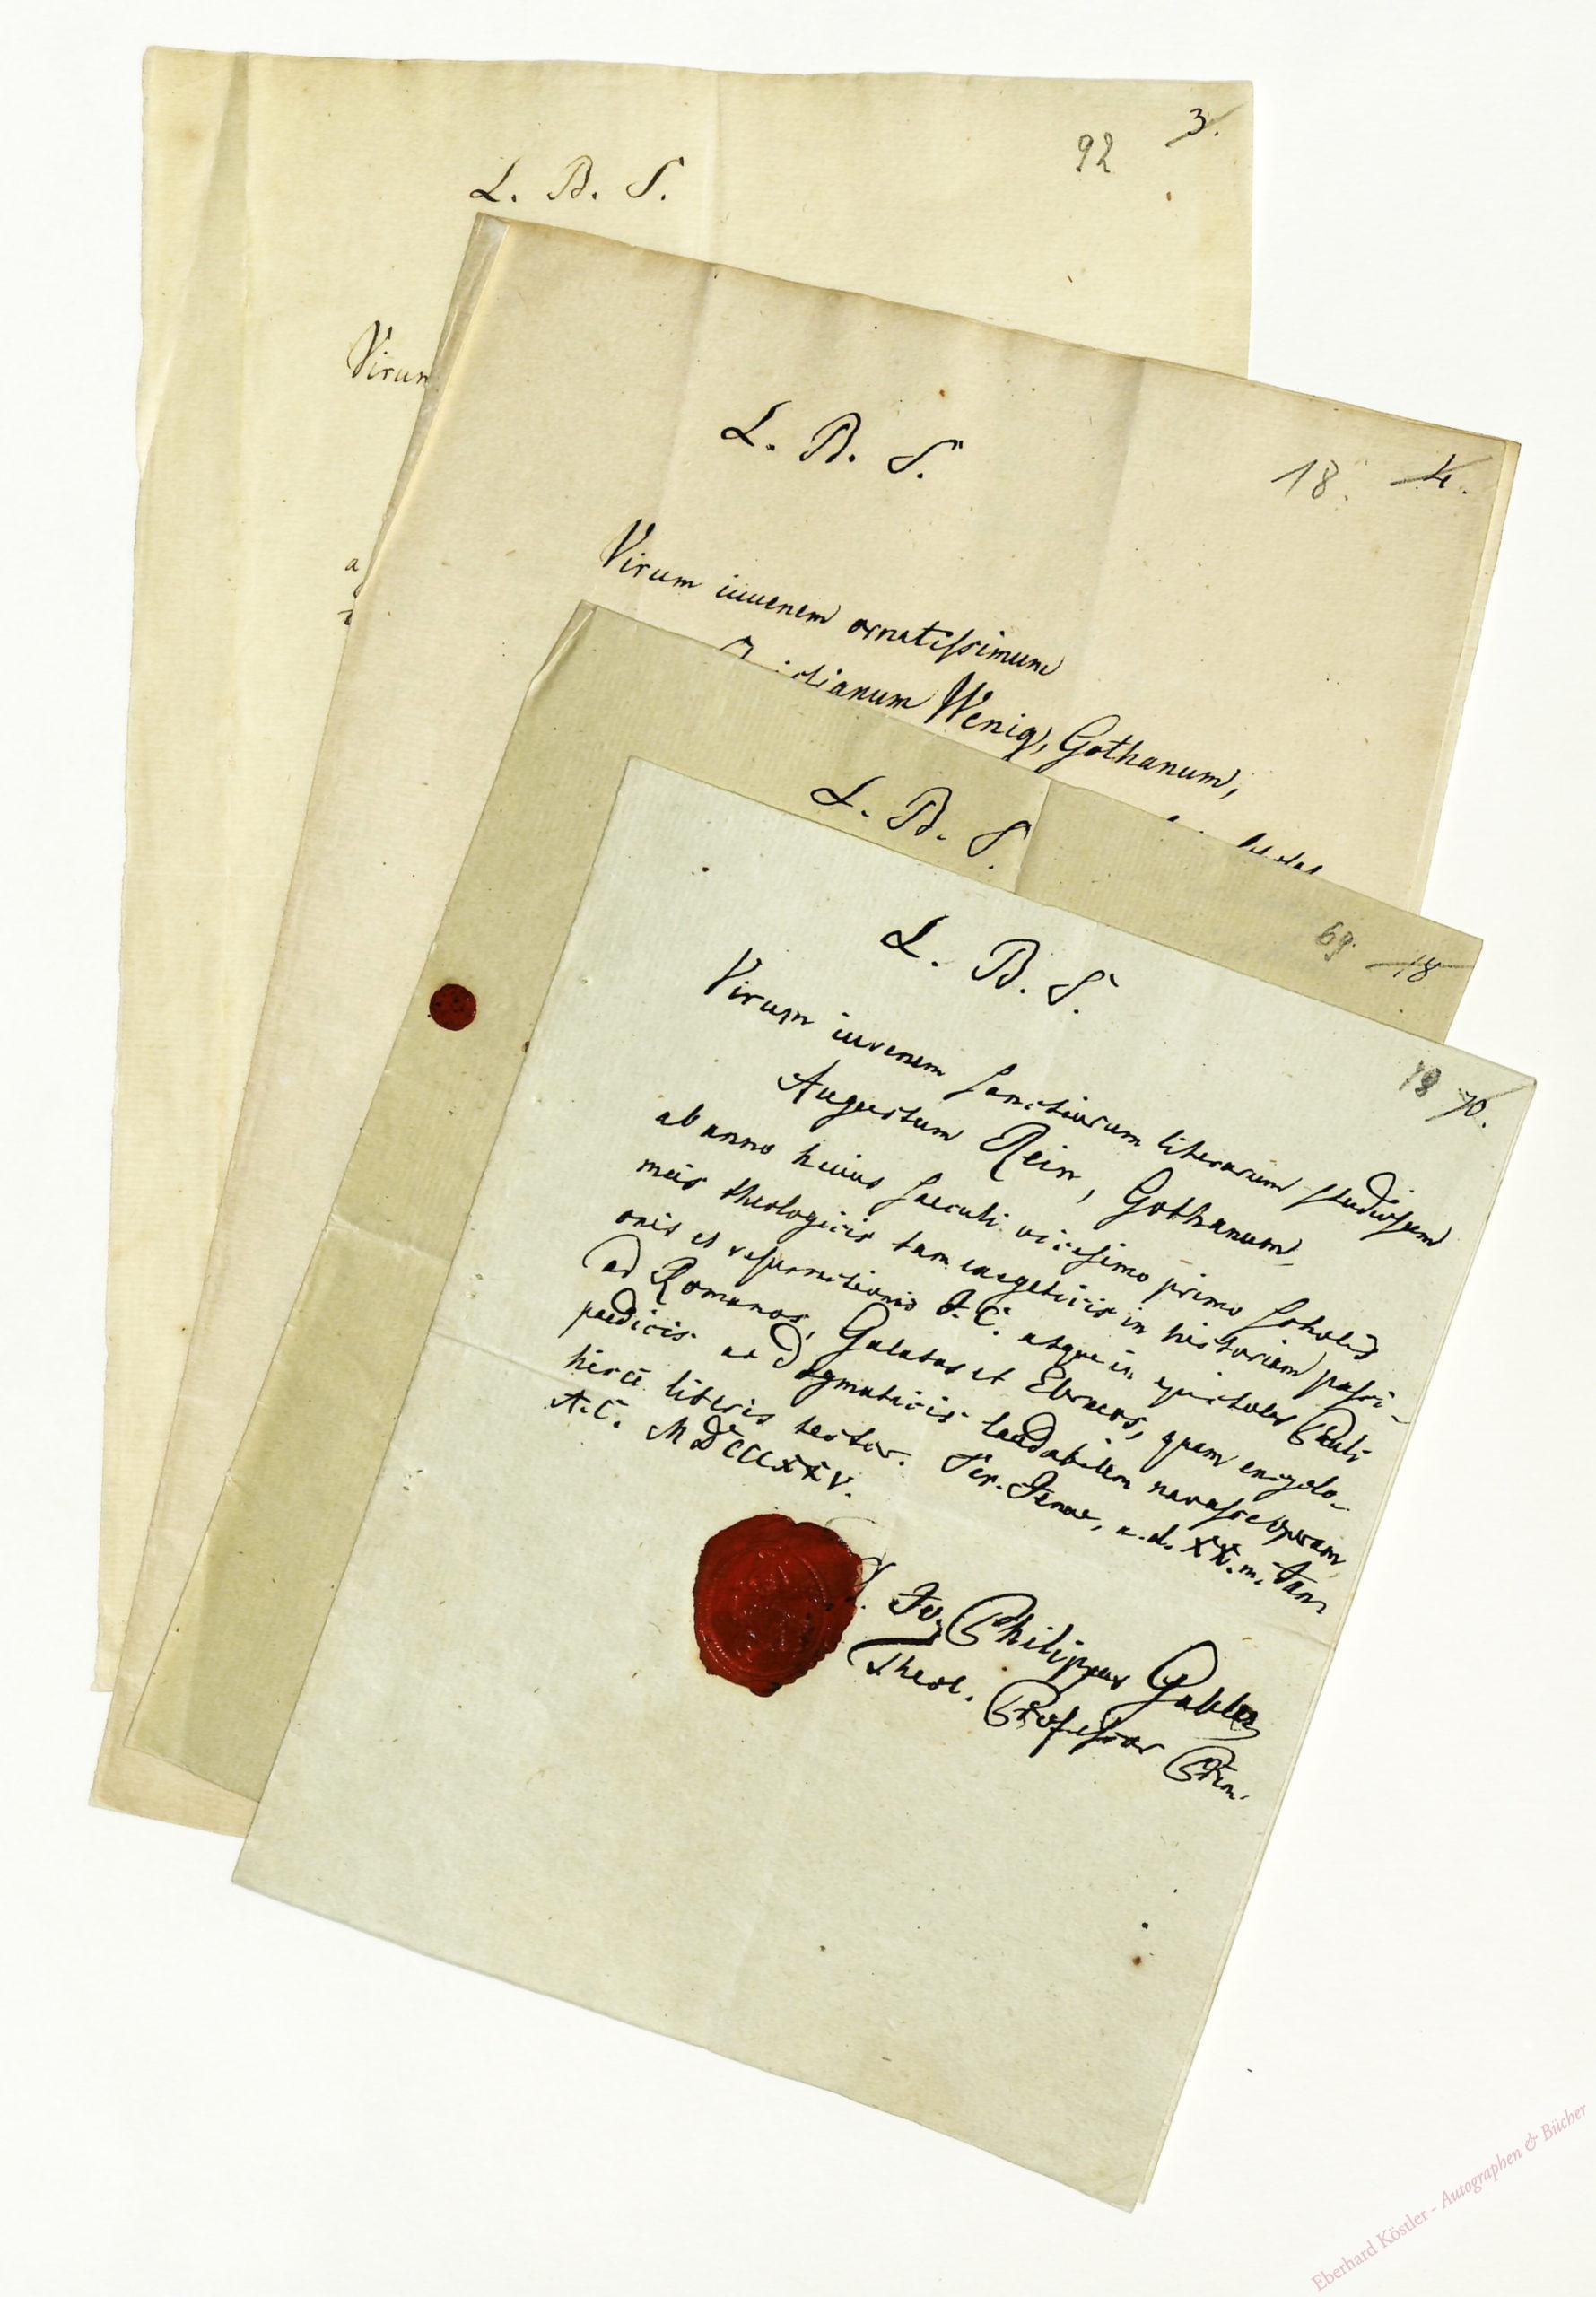 3.
92
L. B. S.
Virum
a
L. B. S.
18. 4.
Virum iuuenem ornatissimum
dianum Wenig, Gothanum,
L. B. S.
69. 18
L. B. S.
78 70.
Virum iuvenem sanctiorum literarum studiosum
Augustum Rein, Gothanum,
ab anno huius saeculi vicesimo primo scholis
meis theologicis tam exegeticis in historiam passi-
onis et resurrectionis J. C. atque in epistolas Pauli
ad Romanos, Galatas et Ebraeos, quam encyclo-
paedicis ac dogmaticis laudabilem navasse operam,
hisce literis testor. Scr. Jenae, a. d. XX. m. Jan.
A. C. MDCCCXXV.
D. Jo. Philippus Gabler
Theol. Professor Prim.
Eberhard Köstler - Autographen & Bücher